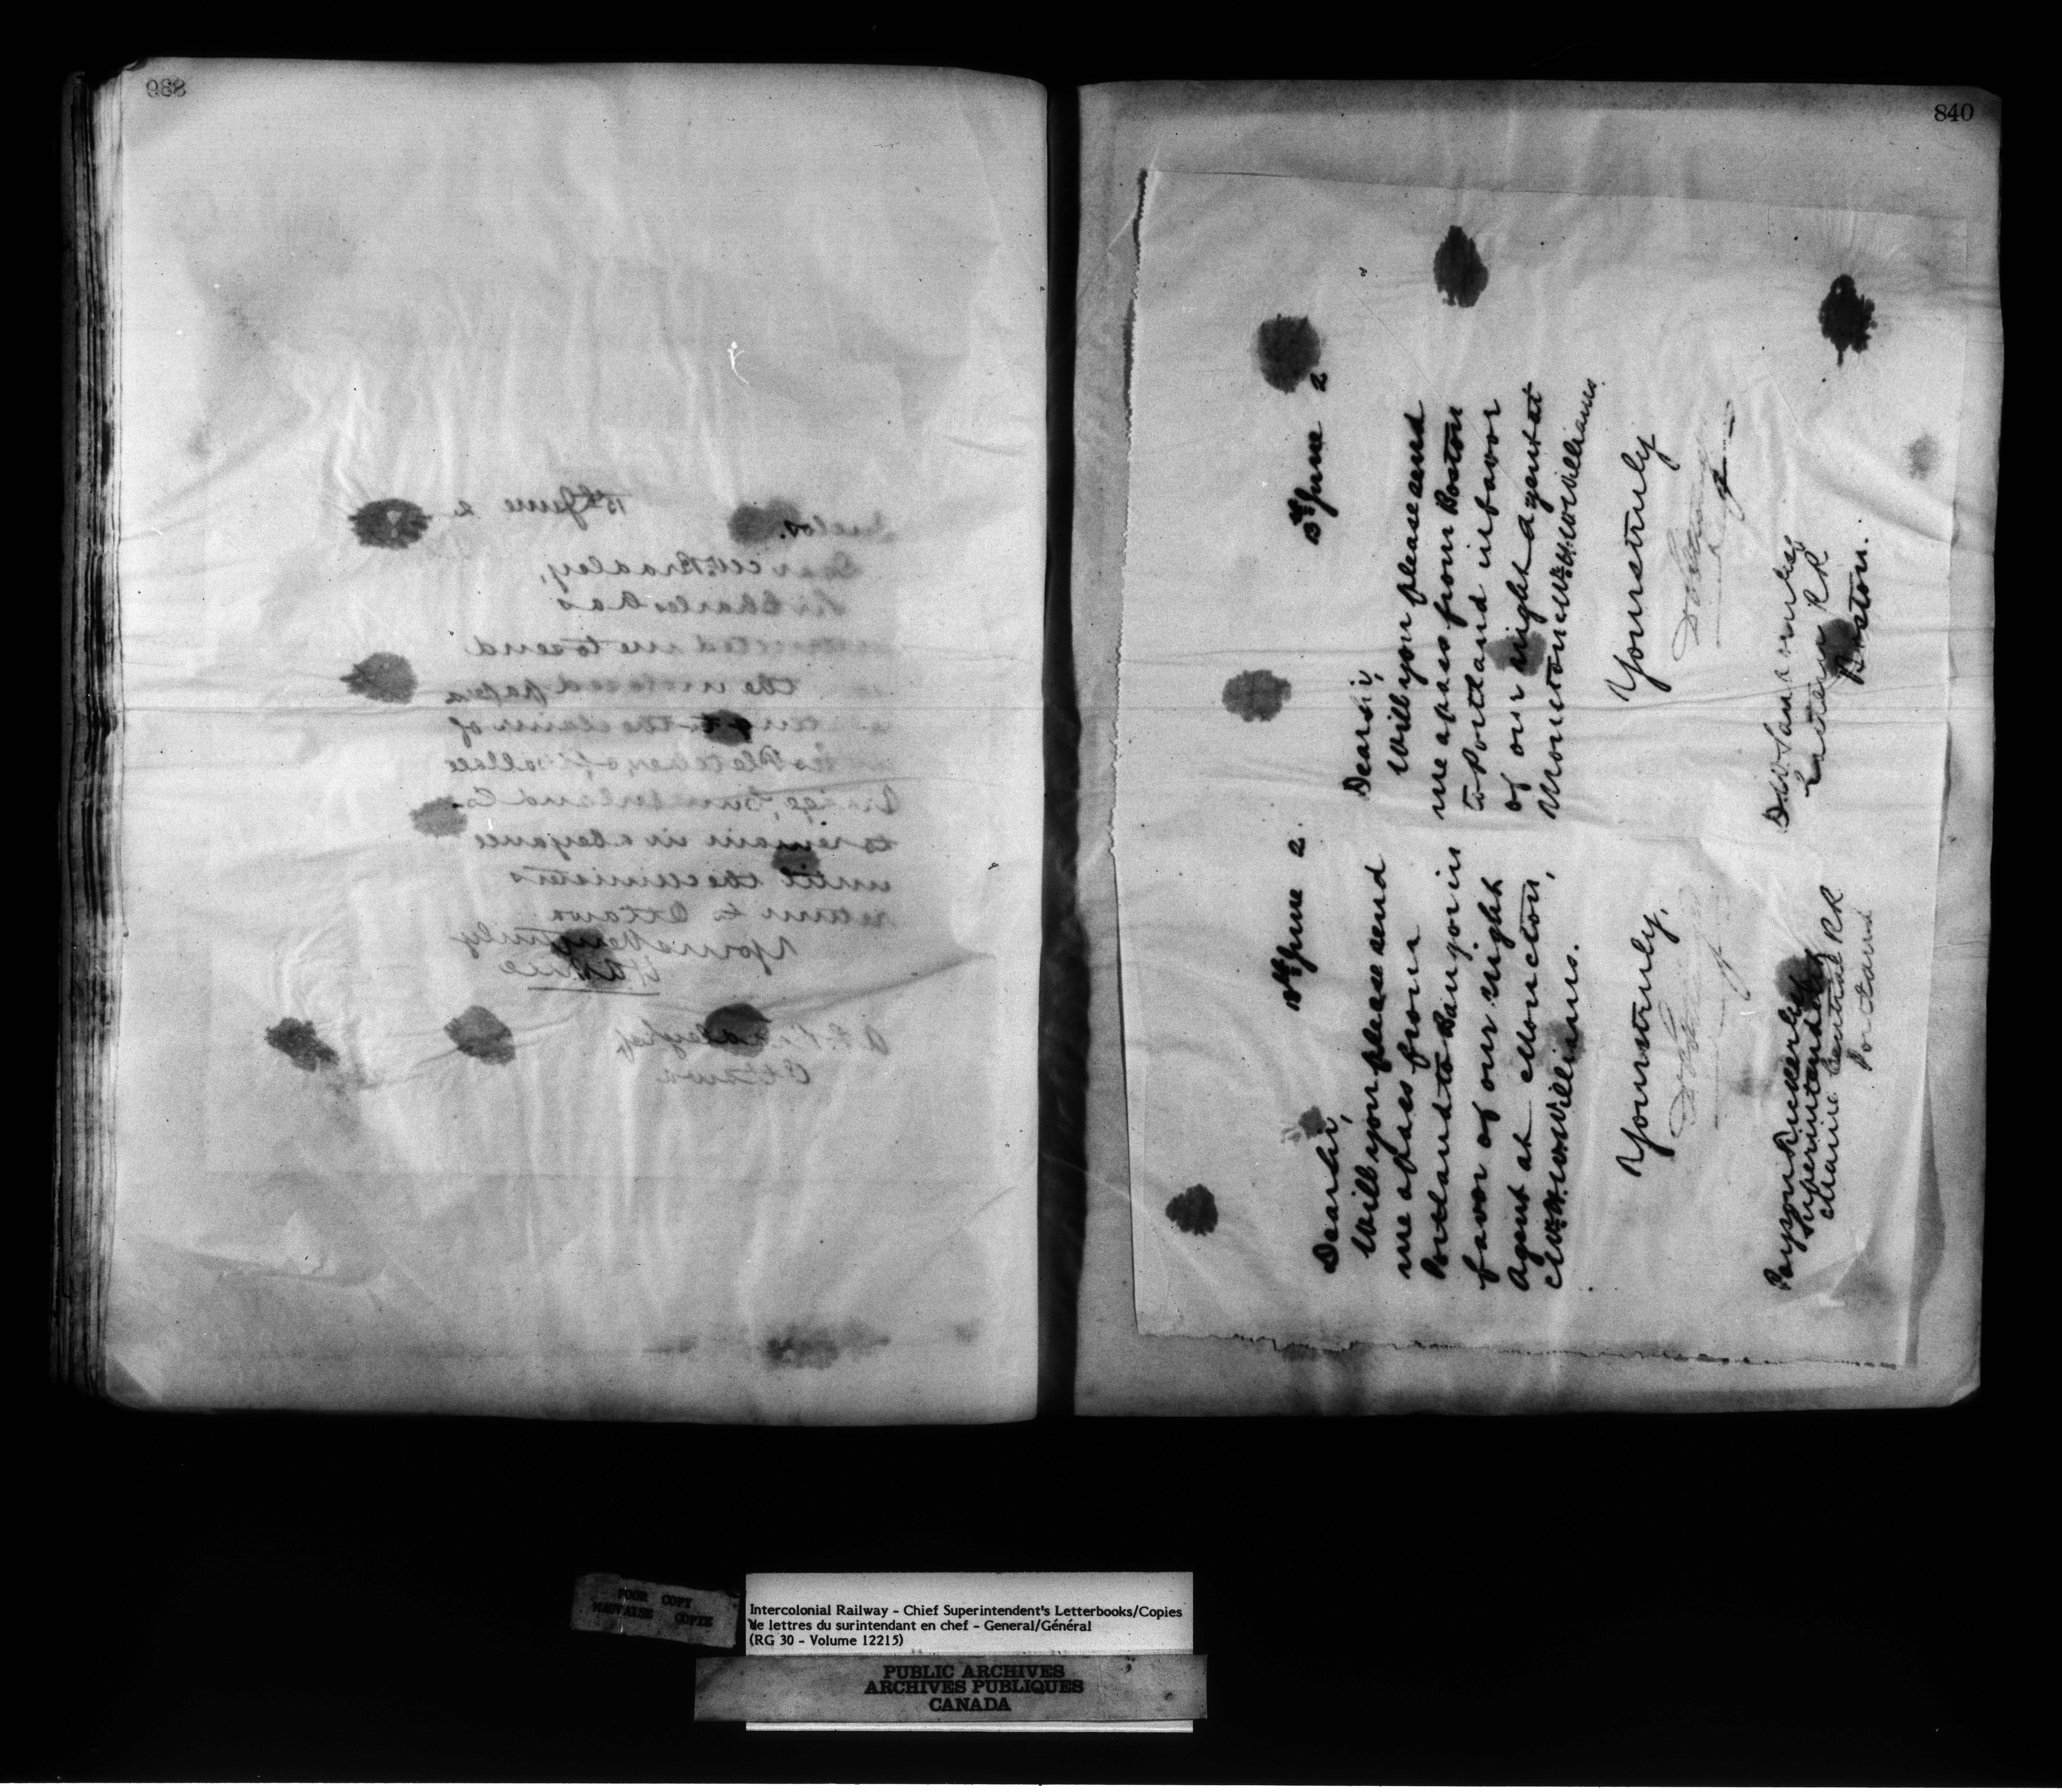 839
13th June 2
Inclos.
Dear Mr. Bradley,
Sir Charles has
instructed me to send
the inclosed papers
relating to the claim of
Fletcher, of Wallace
Bridge, Cumberland Co.
to remain in abeyance
until the ministers
return to Ottawa
Yours very truly
Ottawa
840
13th June 2
Dear Sir,
Will you please send
me a pass from Boston
to Portland in favor
of our night Agent at
Moncton Mr. H. W. Williams.
Yours truly
Eastern RR
Boston.
13th June 2.
Dear Sir,
Will you please send
me a pass from
Portland to Bangor in
favor of our night
Agent at Moncton,
Mr. H. W. Williams.
Yours truly,
Payson Tucker Esq
Superintendent
Maine Central RR
Portland
POOR COPY
MAUVAISE COPIE
Intercolonial Railway - Chief Superintendent's Letterbooks/Copies
de lettres du surintendant en chef - General/Général
(RG 30 - Volume 12215)
PUBLIC ARCHIVES
ARCHIVES PUBLIQUES
CANADA